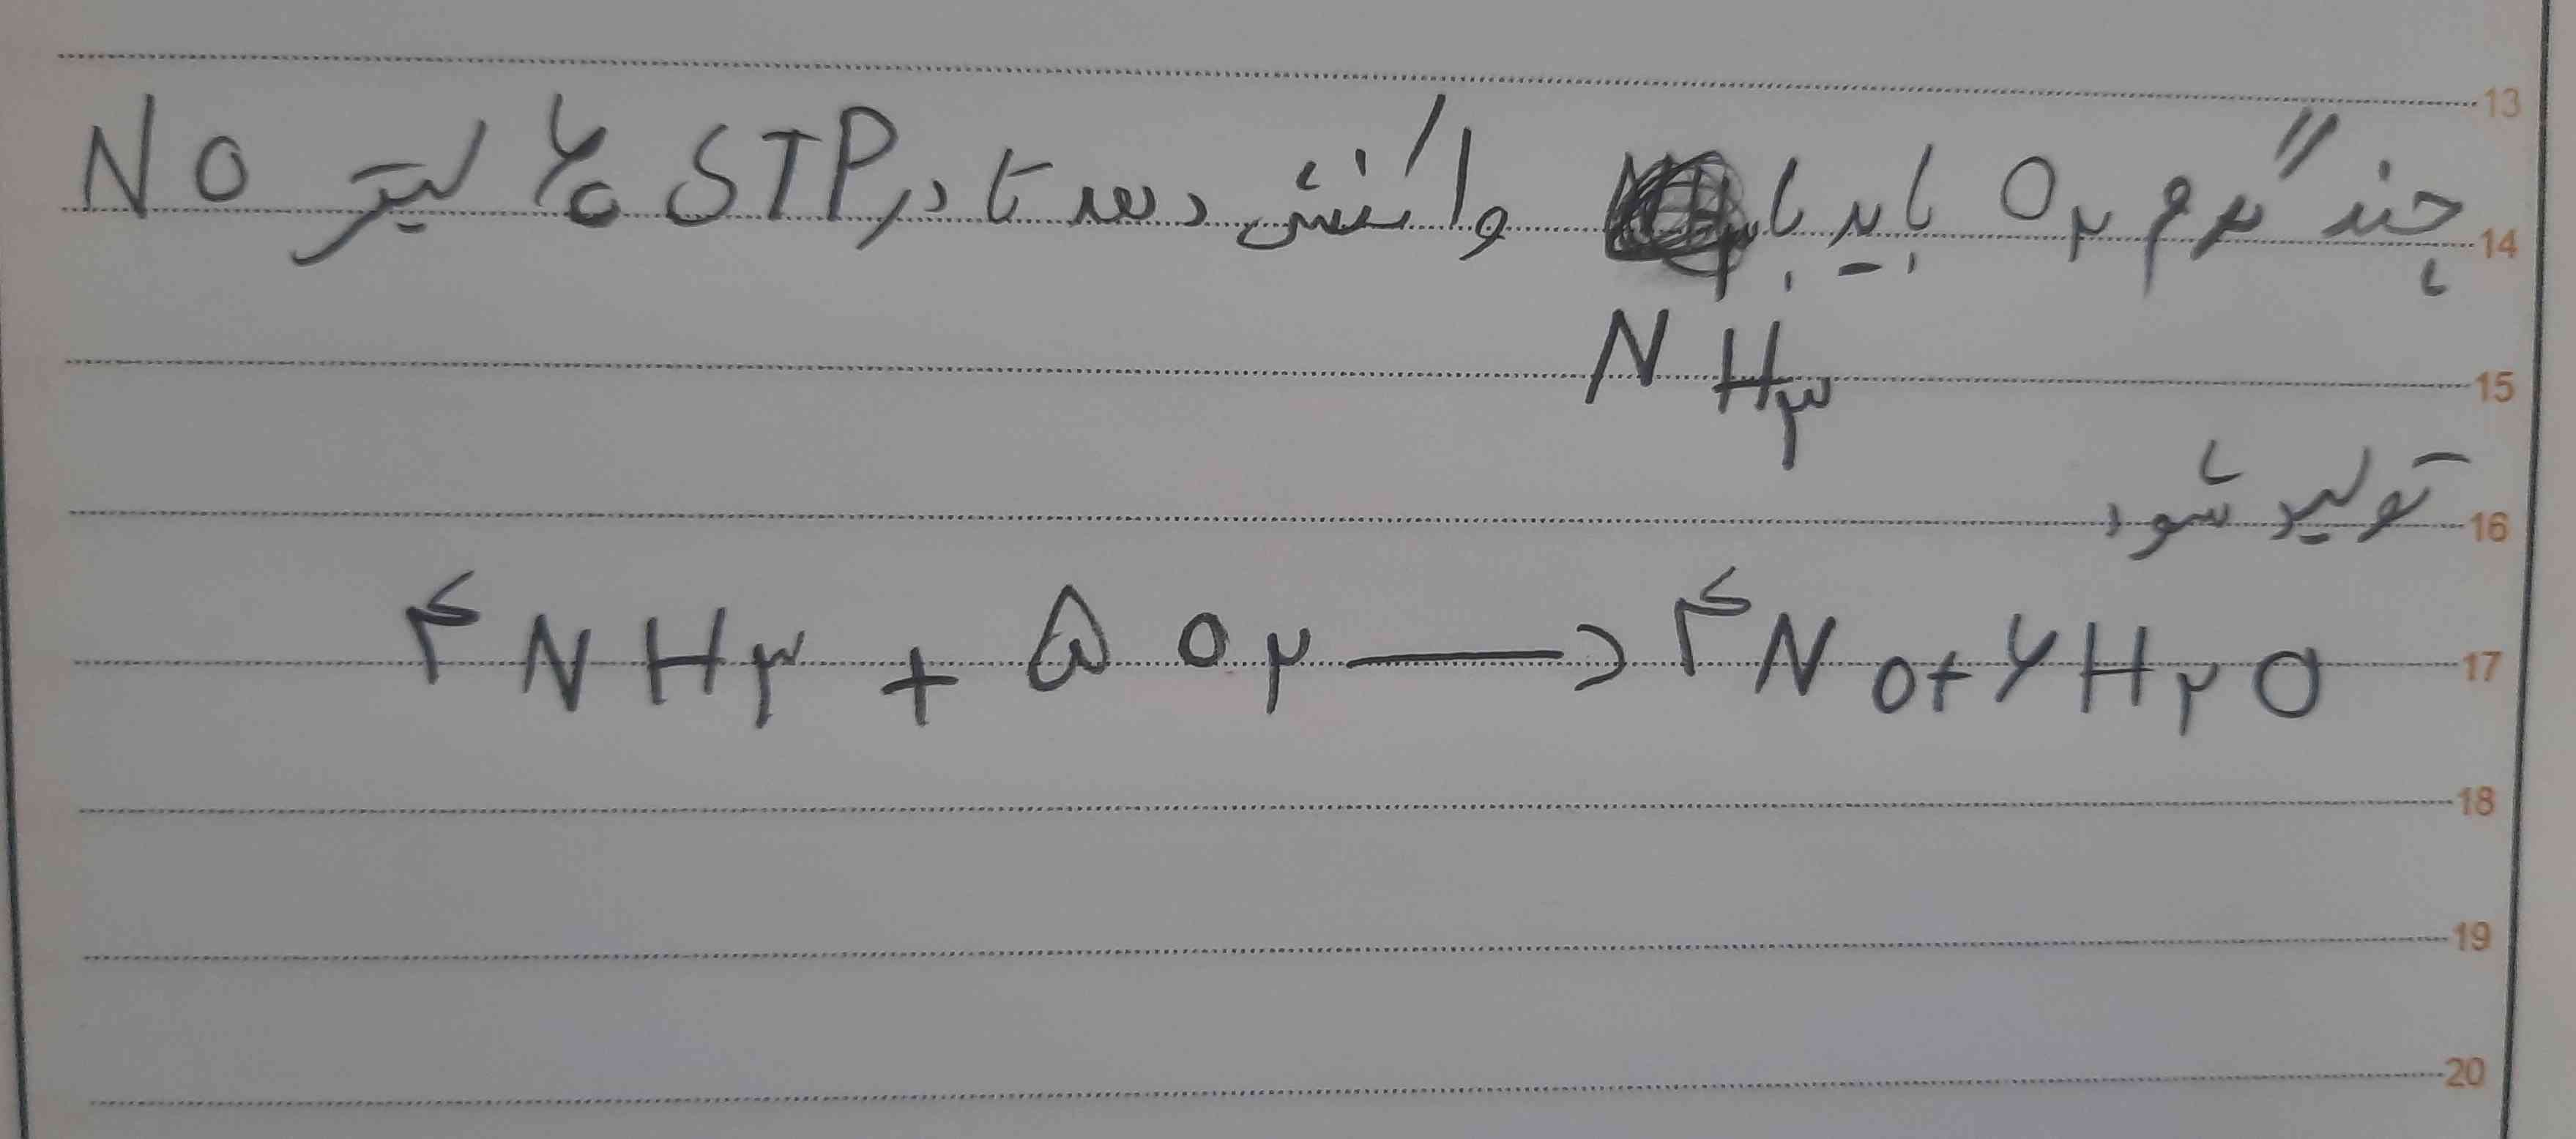 13
چند گرم O۲ باید با واکنش دهد تا در STP ۶۰ لیتر NO
14
NH۳
15
تولید شود
16
۴NH۳ + ۵O۲ → ۴NO + ۶H۲O
17
18
19
20